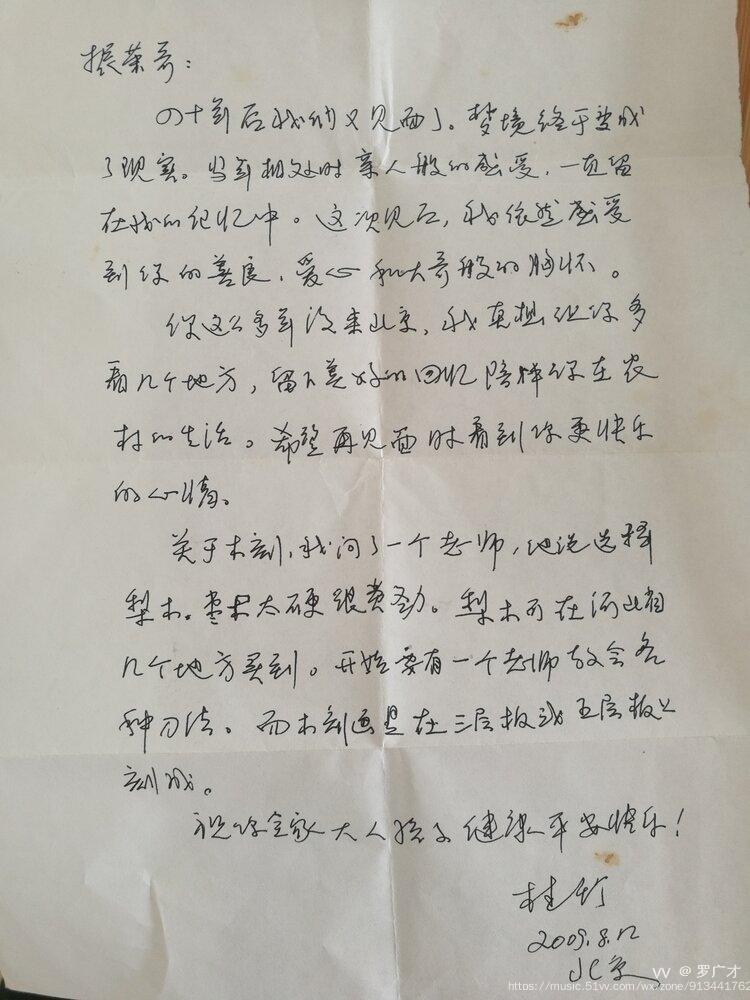 振荣哥：
四十年后我们又见面了。梦境终于变成
了现实。当年相处时亲人般的感受，一直留
在我的记忆中。这次见后，我依然感受
到你的善良、爱心和大哥般的胸怀。
你这么多年没来北京，我真想让你多
看几个地方，留下美好的回忆陪伴你在农
村的生活。希望再见面时看到你更快乐
的心情。
关于木刻，我问了一个老师，他说选择
梨木。枣木太硬很费劲。梨木可在河北省
几个地方买到。开始要有一个老师教会各
种刀法。而木刻画是在三层板或五层板上
刻成。
祝你全家大人孩子健康平安快乐！
桂竹
2009.8.12
北京
@罗广才
https://music.51w.com/wx.zone/913441762